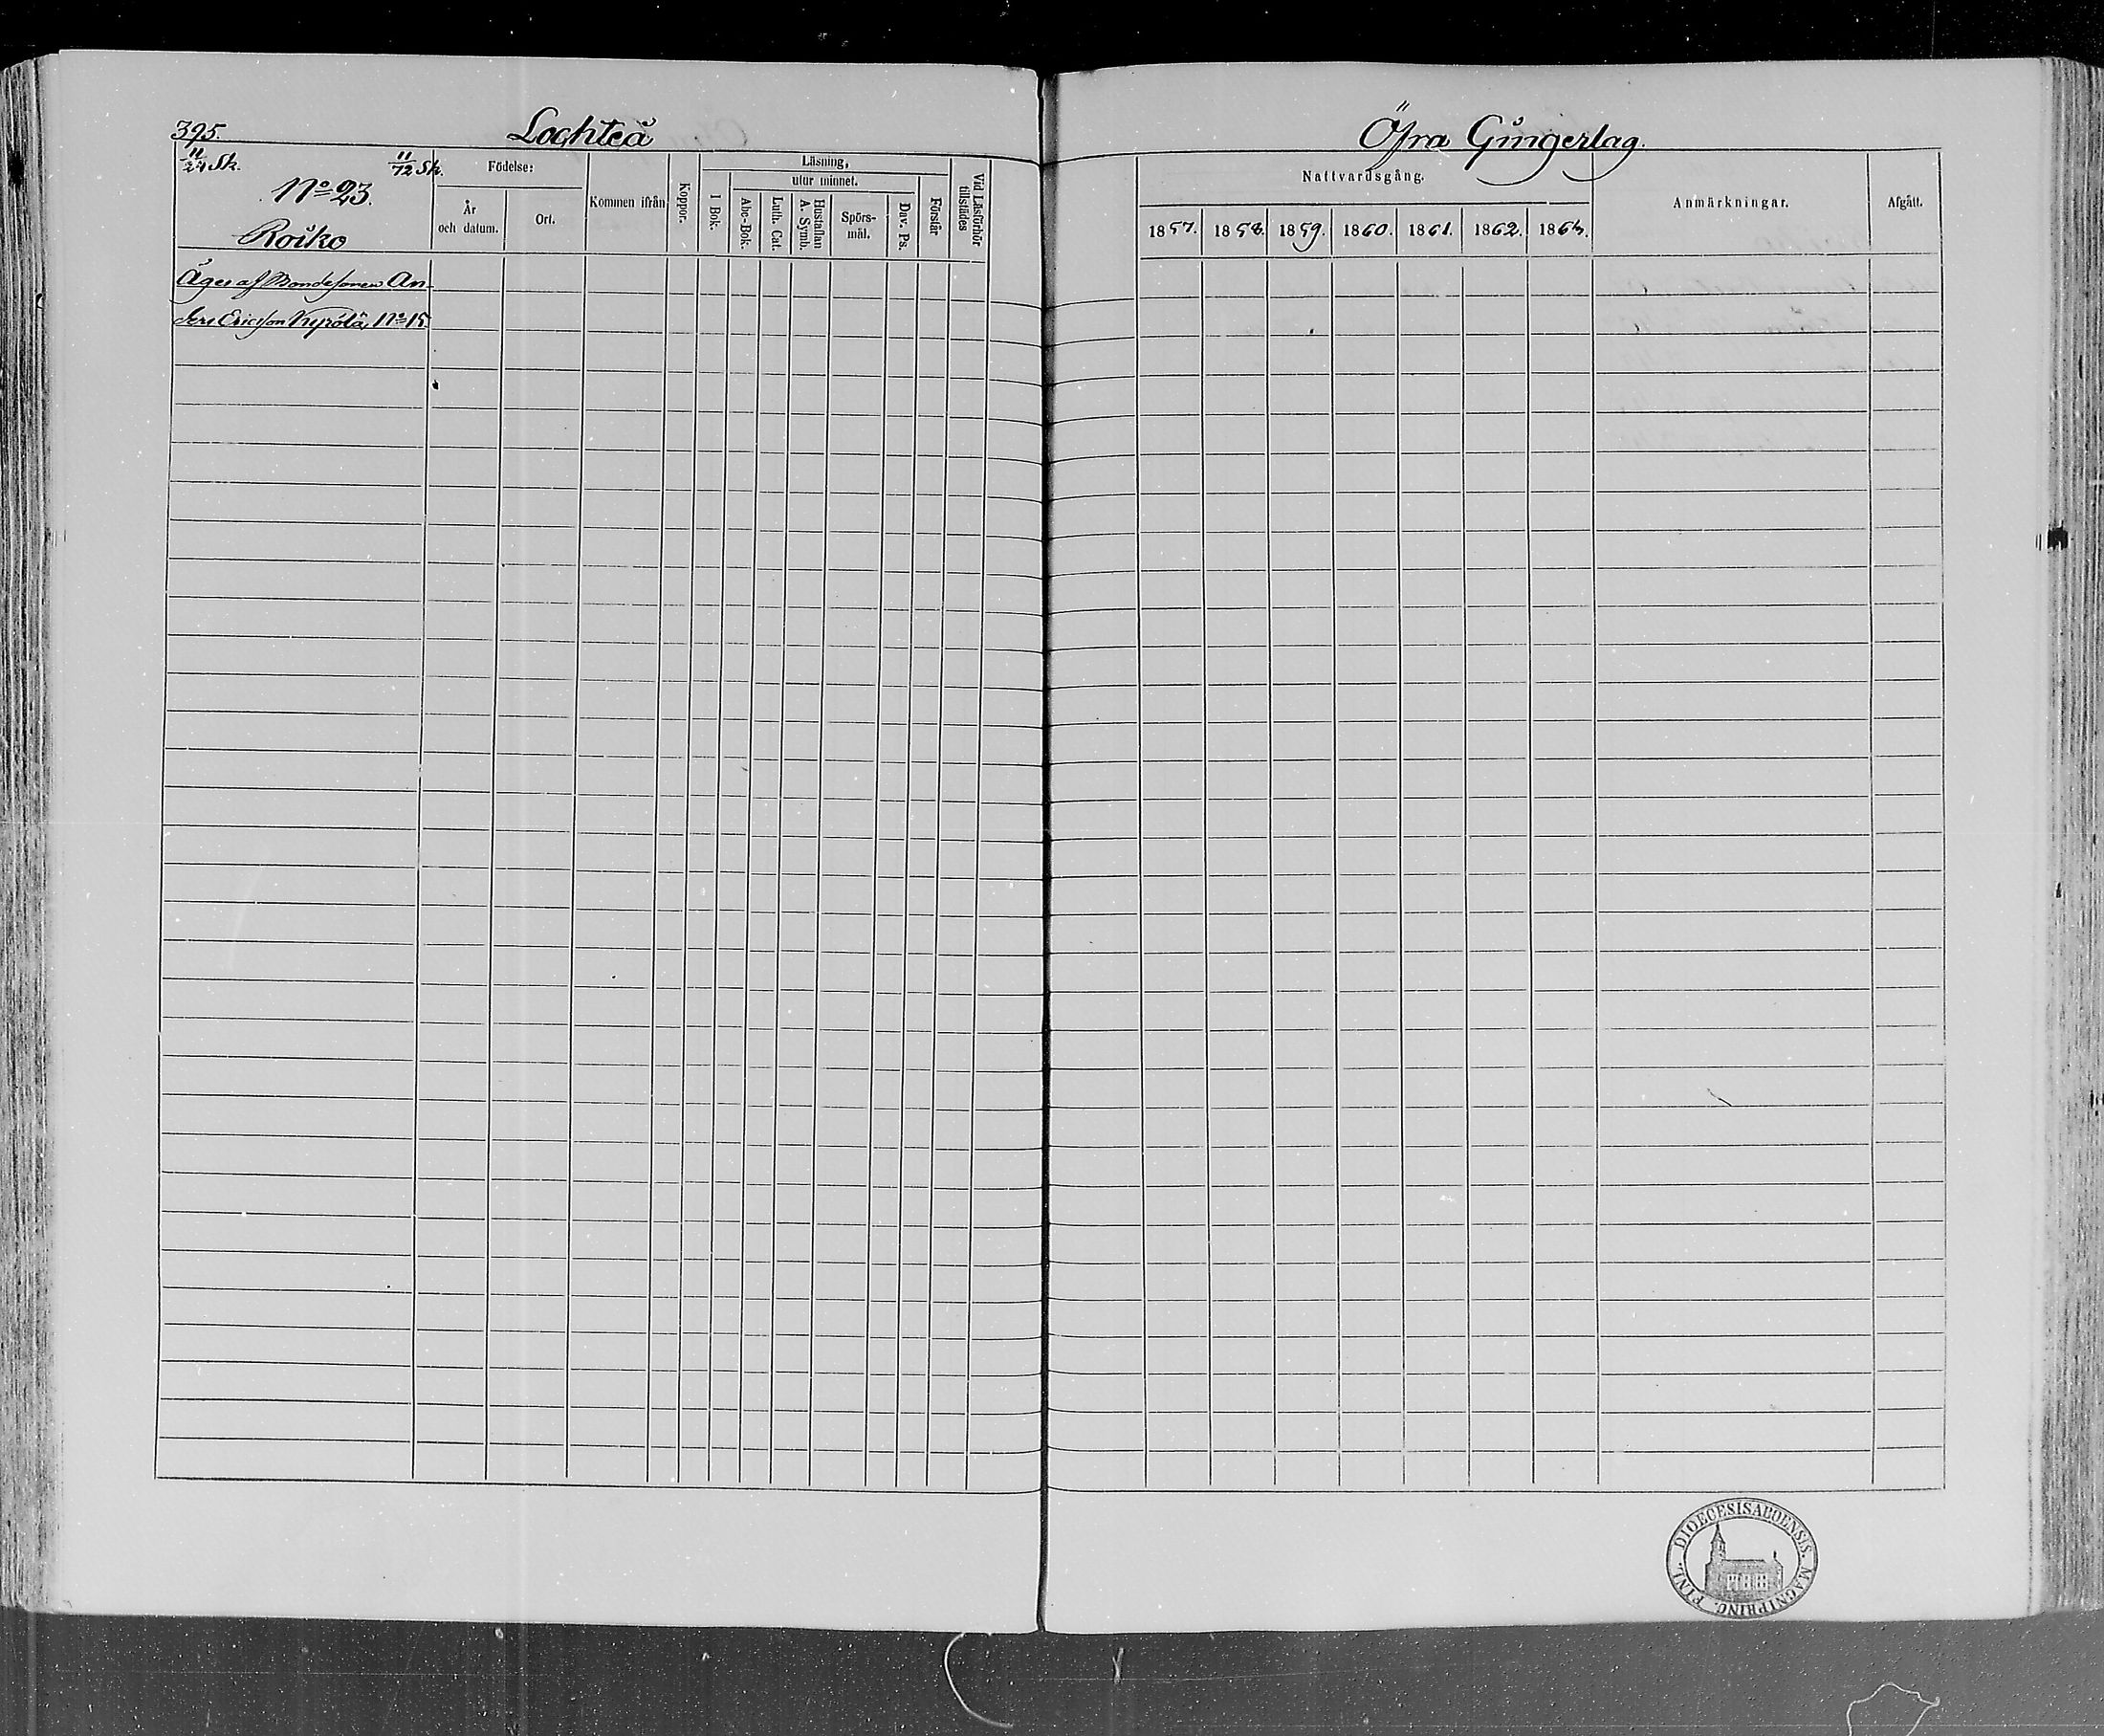 395.
Lochteå
11/24 Sk.
11/12 Sk.
No 23.
Roiko
Födelse:
År
och datum.
Ort.
Kommen ifrån
Koppor.
Läsning,
I Bok.
utur minnet.
Abc-Bok.
Luth. Cat.
Hustaflan
A. Symb.
Spörs-
mål.
Dav. Ps.
Förstår
Vid Läsförhör
tillstädes
Äges af Bondesonen An-
ders Ericson Kyrölä, No 15.
Öfra Gungerlag.
Nattvardsgång.
1857. 1858. 1859. 1860. 1861. 1862. 1863.
Anmärkningar.
Afgått.
DIOECESIS ABOENSIS. MAGNI PRINC. FINL.